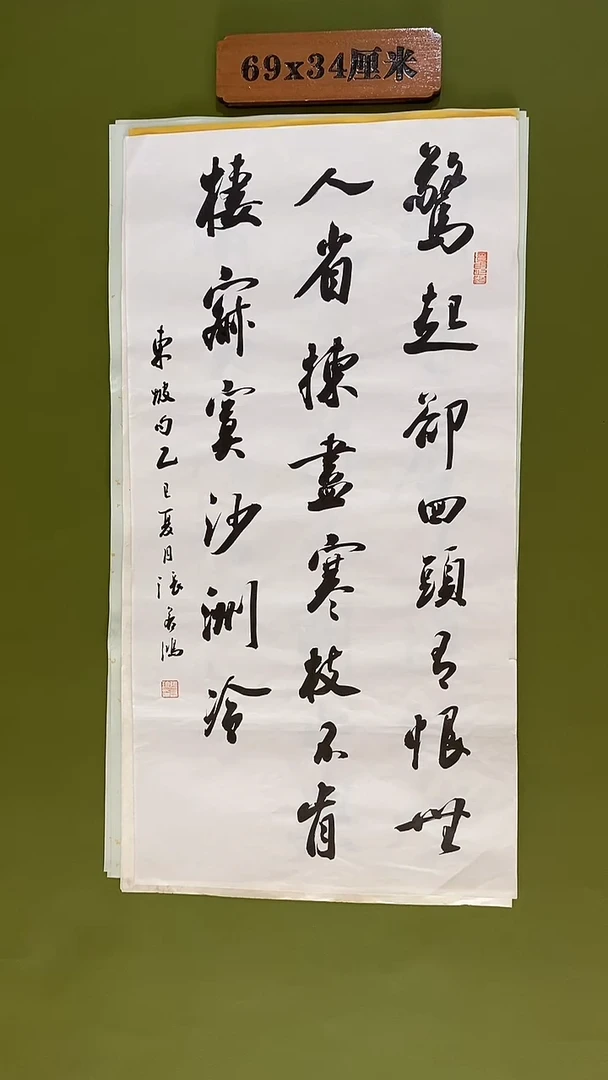 69x34厘米
驚起卻回頭有恨無
人省揀盡寒枝不肯
棲寂寞沙洲冷
東坡句乙巳夏月張